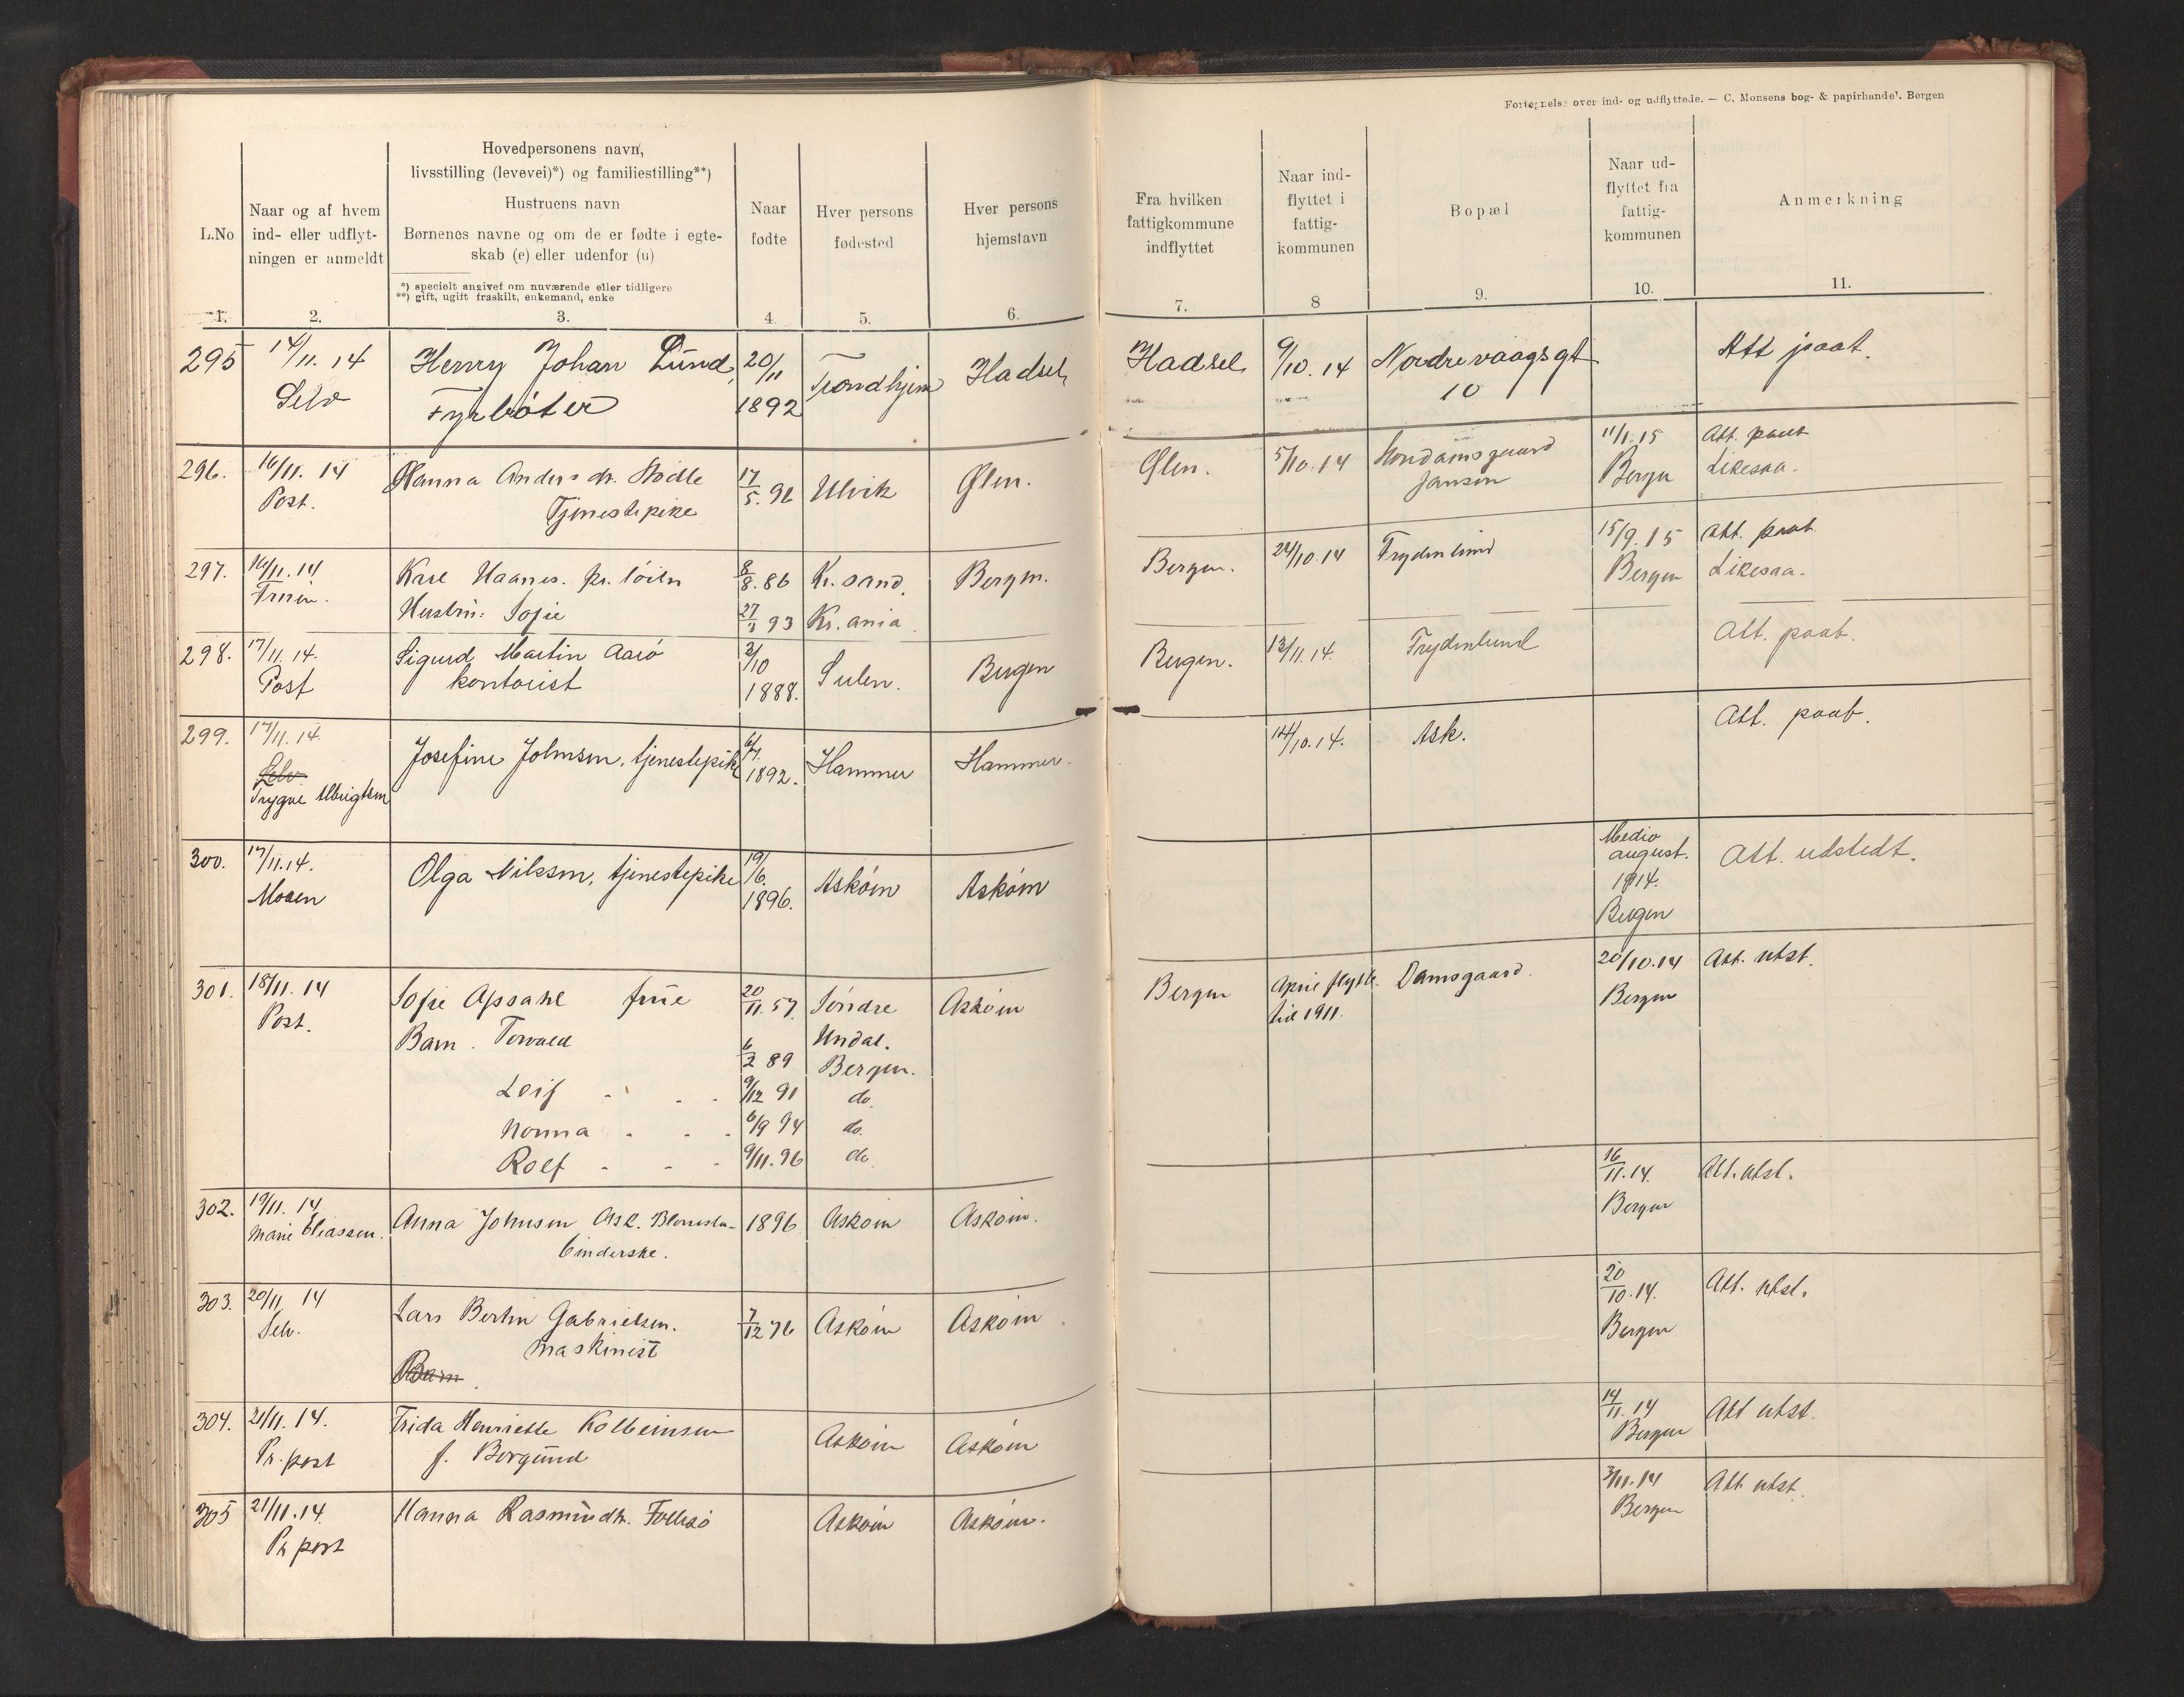 Fortegnelse over ind- og udflyttede. — C. Monsens bog- & papirhandel, Bergen
L.No
Naar og af hvem
ind- eller udflyt-
ningen er anmeldt
Hovedpersonens navn,
livsstilling (levevei)*) og familiestilling**)
Hustruens navn
Børnenes navne og om de er fødte i egte-
skab (e) eller udenfor (u)
*) specielt angivet om nuværende eller tidligere
**) gift, ugift fraskilt, enkemand, enke
Naar
fødte
Hver persons
fødested
Hver persons
hjemstavn
Fra hvilken
fattigkommune
indflyttet
Naar ind-
flyttet i
fattig-
kommunen
Bopæl
Naar ud-
flyttet fra
fattig-
kommunen
Anmerkning
1. 2. 3. 4. 5. 6. 7. 8 9. 10. 11.
295 14/11. 14 Henry Johan Lund, 20/11 Trondhjem Hadsel Hadsel 9/10. 14 Nordrevaagsgt Att paat.
Selv Fyrbøter 1892 10
296. 16/11. 14 Hanna Andersdr. 17/5. 96 Ulvik Ølen. Ølen. 5/10. 14 11/1. 15 Att. paat
Post. Tjenestepike Jansen Bergen Likesaa.
297. 16/11. 14 Karl Haanes. 8/8. 86 Kr. sand. Bergen. Bergen. 24/10. 14 Frydenlund 15/9. 15 Att. paat.
Fruen. Hustru: Sofie 93 Kr. ania. Bergen Likesaa.
298. 17/11. 14. Sigurd Martin Aarø /10 Sulen. Bergen Bergen. 13/11. 14. Frydenlund Att. paat.
Post kontorist 1888.
299. 17/11. 14. Josefine Johnsen, tjenestepike Hammer Hammer. /10. 14. Ask. Att. paat.
Selv 1892.
Trygve
300. 17/11. 14. Olga Nilssen, tjenestepike 19/6. Askøen Askøen Medio Att. udstedt.
Moren 1896. august.
1914.
Bergen
301. 18/11. 14 Sofie Opsahl frue 20/11. 57. Søndre Askøen Bergen April flytt. Damsgaard. 20/10. 14 Att. utst.
Post. Undal. til 1911. Bergen
Barn. Torvald 6/2 89 Bergen.
Leif - - - 9/12 91 do.
Nonna - - - 6/9 94 do.
Rolf - - - 9/11. 96 do.
302. 19/11. 14. Anna Johnsen Ask. Blomster- 1896 Askøen Askøen. 16/11. 14. Att. utst.
Marie Eliassen. binderske. Bergen
303. 20/11 14 Lars Bertin Gabrielsen. 7/12 76 Askøen Askøen. 20/10. 14. Att. utst.
Selv. maskinist Bergen
Barn
304. 21/11. 14. Frida Henriette Kolbeinsen Askøen Askøen 14/11. 14 Att utst.
Pr. post f. Borgund Bergen
305 21/11. 14. Hanna Rasmusdtr. Follesø Askøen Askøen. 3/11. 14 Att. utst.
Pr post Bergen